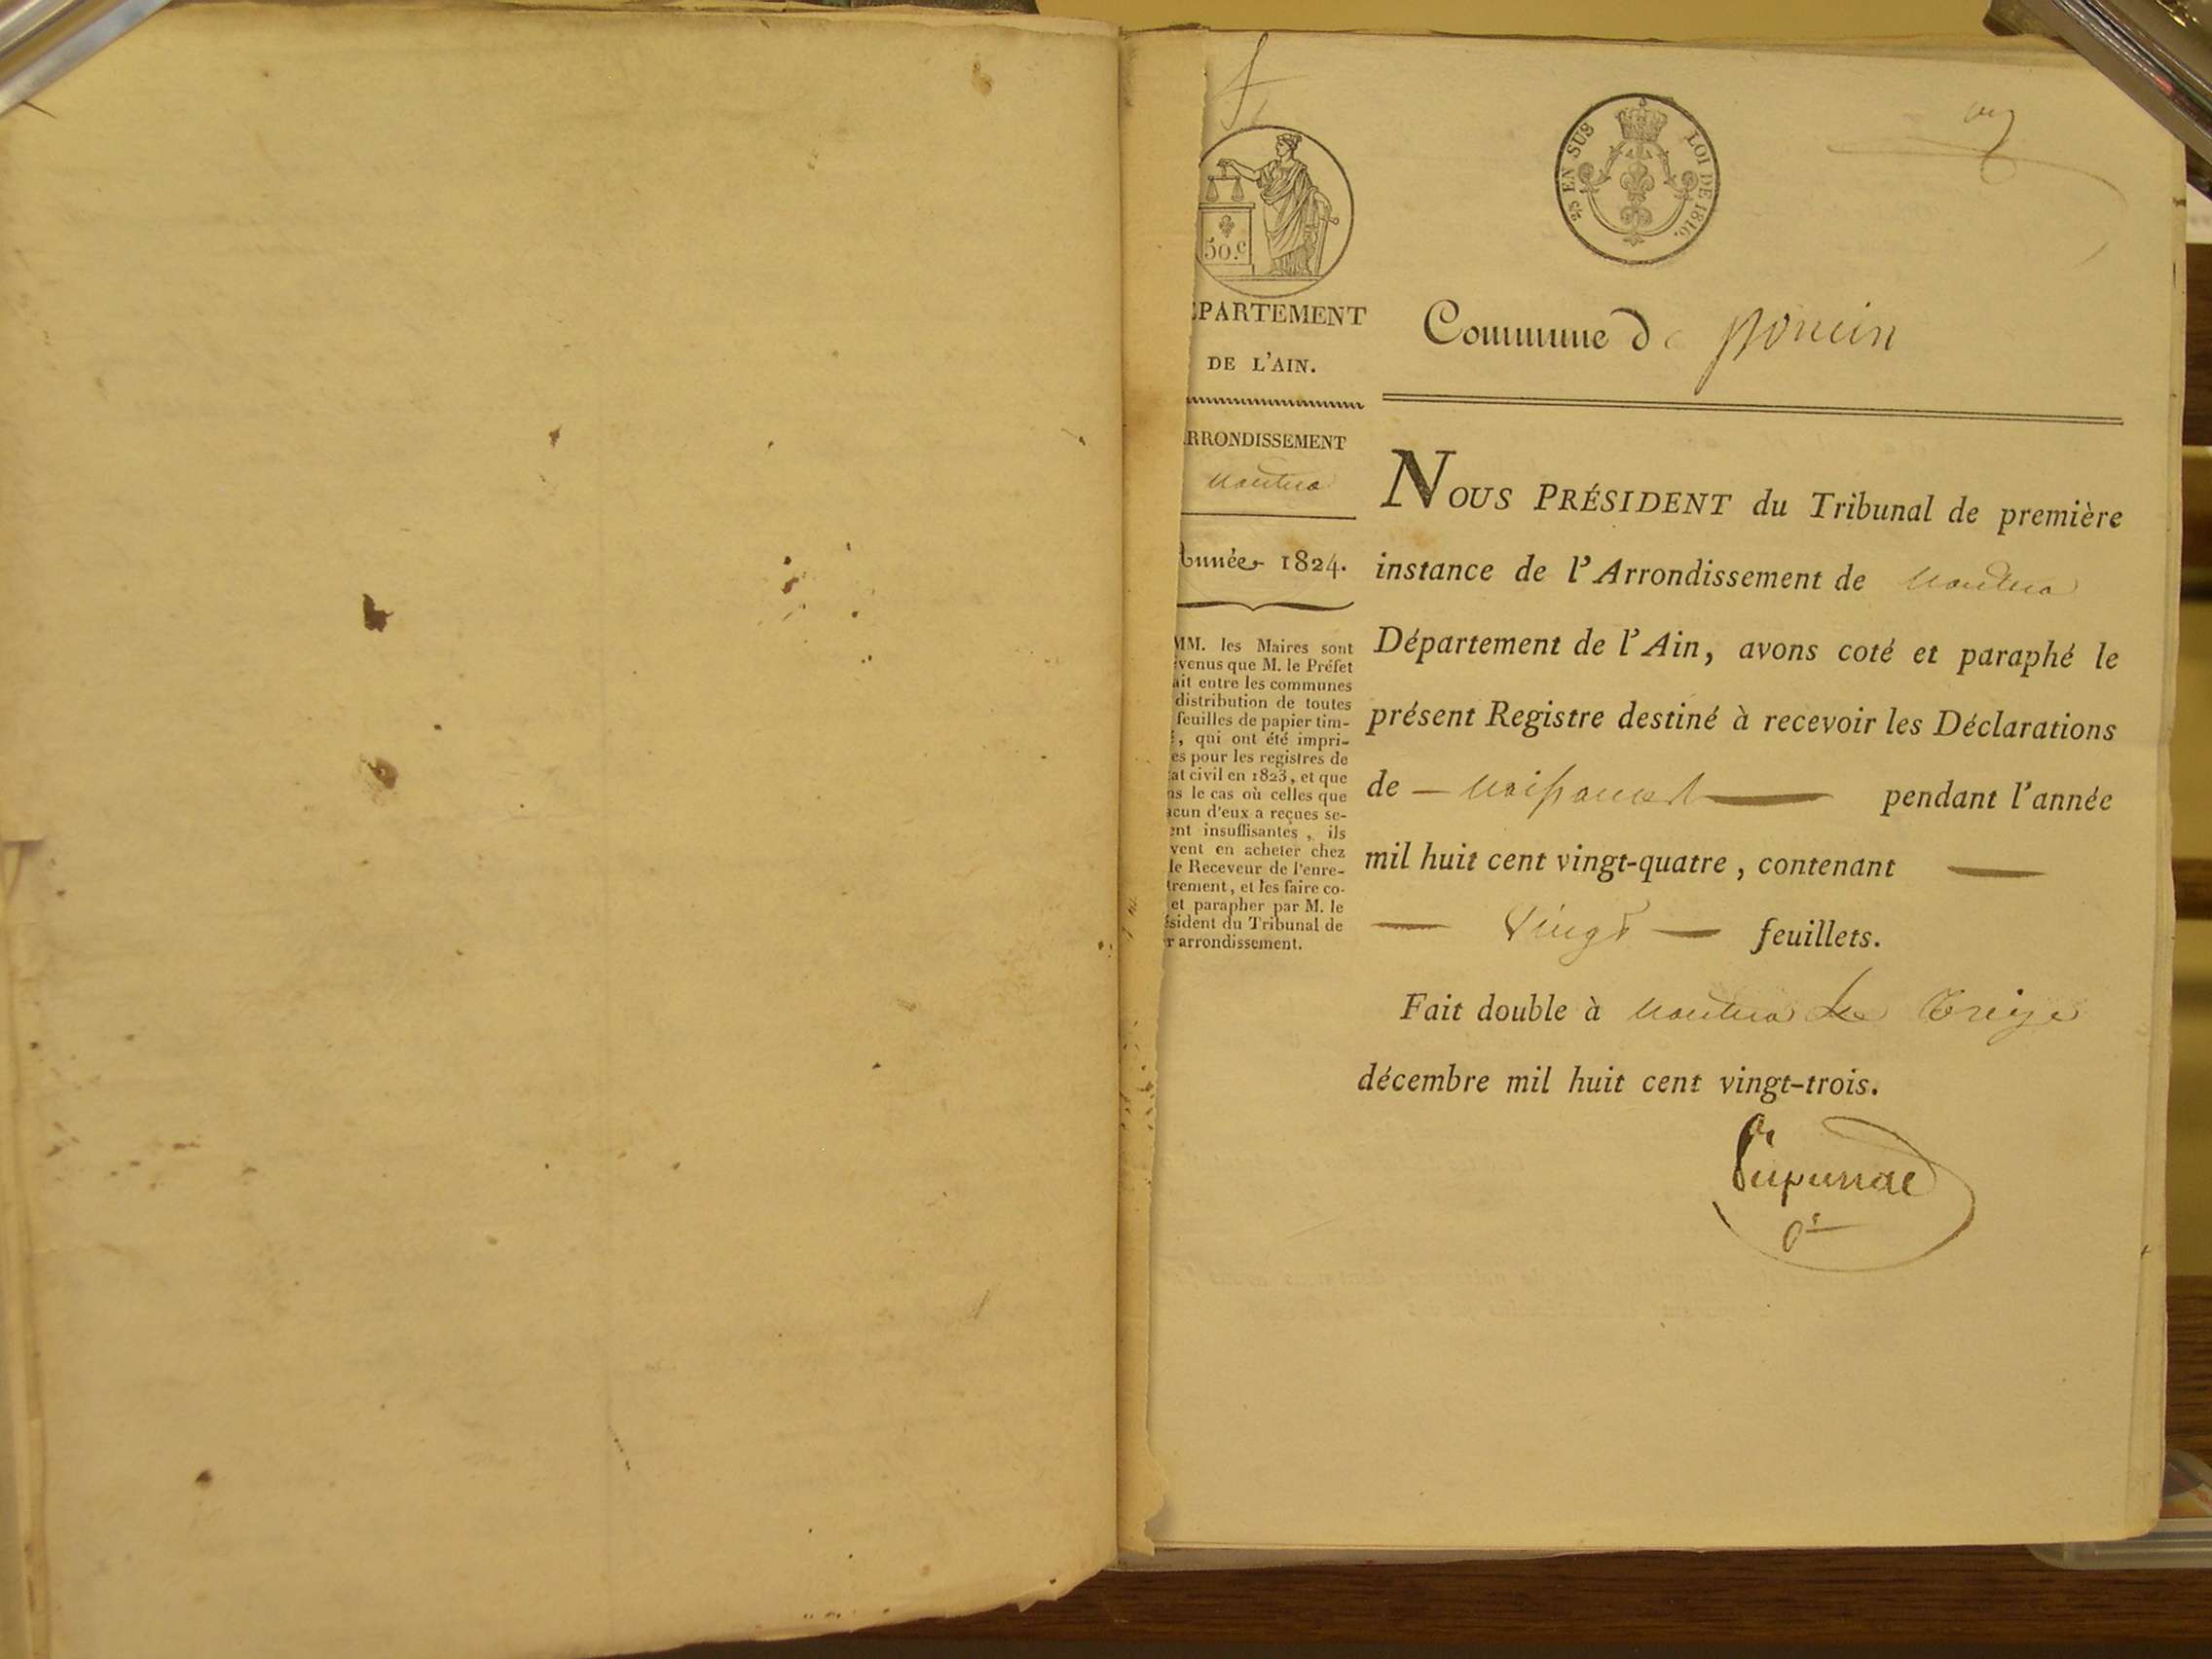 50.c
⅖ EN SUS LOI DE 1816.
Commune de poncin
PARTEMENT
DE L'AIN.
RRONDISSEMENT
Nantua
Année 1824.
MM. les Maires sont
venus que M. le Préfet
ait entre les communes
distribution de toutes
feuilles de papier tim-
, qui ont été impri-
es pour les registres de
at civil en 1823, et que
ns le cas où celles que
acun d'eux a reçues se-
ent insuffisantes, ils
vent en acheter chez
le Receveur de l'enre-
trement, et les faire co-
et parapher par M. le
ésident du Tribunal de
r arrondissement.
NOUS PRÉSIDENT du Tribunal de première
instance de l'Arrondissement de Nantua
Département de l'Ain, avons coté et paraphé le
présent Registre destiné à recevoir les Déclarations
de — naissances — pendant l'année
mil huit cent vingt-quatre, contenant —
— vingt — feuillets.
Fait double à Nantua le treize
décembre mil huit cent vingt-trois.